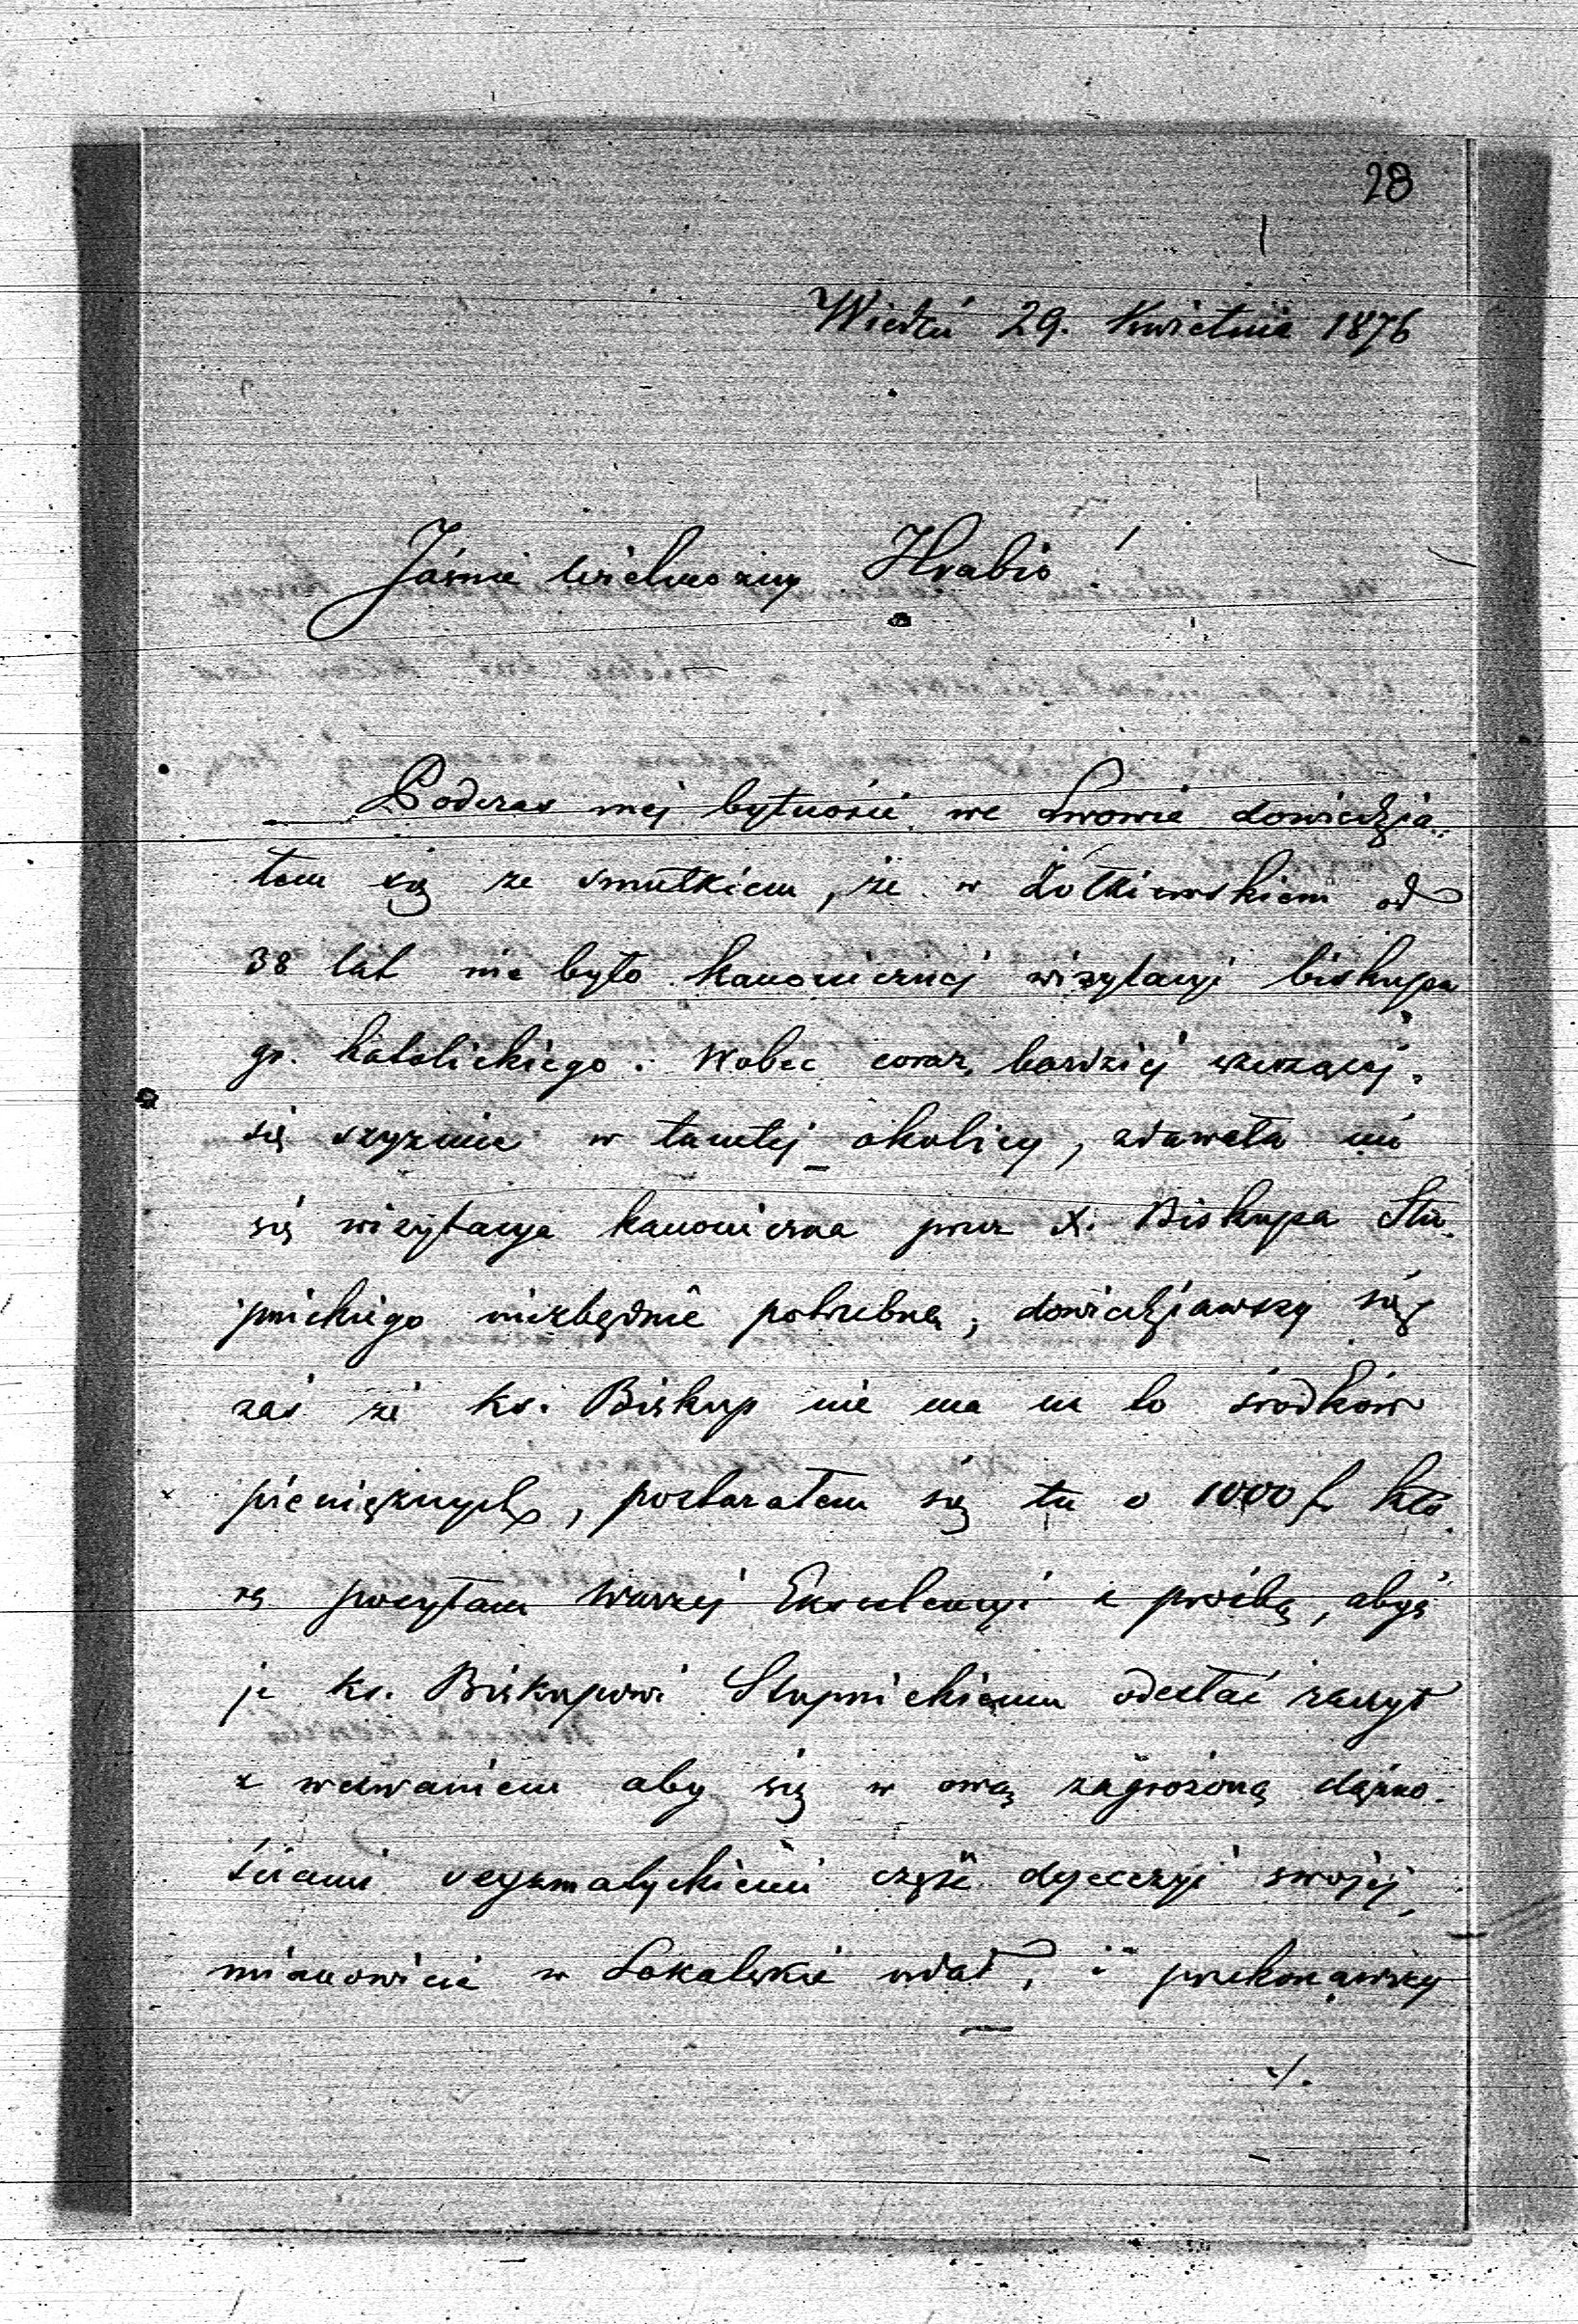 28
Wiedeń 29. Kwietnia 1876
Jaśnie Wielmożny Hrabio!
Podczas mej bytności we Lwowie dowiedzia-
łem się ze smutkiem, że w Żółkiewskiem od
38 lat nie było kanonicznej wizytacyi biskupa
gr. katolickiego. Wobec coraz bardziej szerzącej
się szyzmie w tamtej okolicy, zdawała mi
się wizytacya kanoniczna przez X. Biskupa Stu-
pnickiego niezbędnie potrzebną; dowiedziawszy się
zaś że ks. Biskup nie ma na to środków
pieniężnych, postarałem się tu o 1000 f. któ-
re posyłam Waszej Exculencyi z prośbą, abyś
je ks. Biskupowi Stupnickiemu odesłać raczył
z wezwaniem aby się w ową zagrożoną dążno-
ściami scyzmatyckiemi część dyecezyi swojej,
mianowicie w Sokalskie udał, i przekonawszy
./.